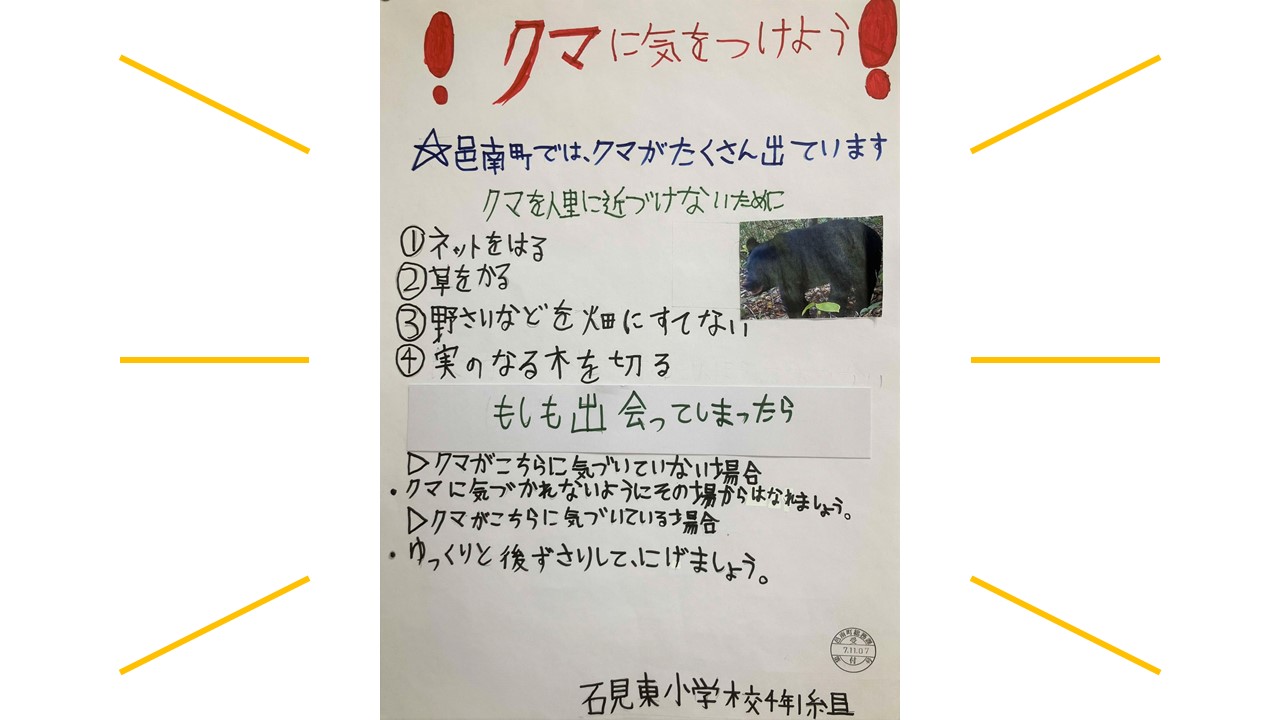 ！クマに気をつけよう！
☆邑南町では、クマがたくさん出ています
クマを人里に近づけないために
①ネットをはる
②草をかる
③野さいなどを畑にすてない
④実のなる木を切る
もしも出会ってしまったら
▷クマがこちらに気づいていない場合
・クマに気づかれないようにその場からはなれましょう。
▷クマがこちらに気づいている場合
・ゆっくりと後ずさりして、にげましょう。
受
7.11.07
付
石見東小学校4年1組